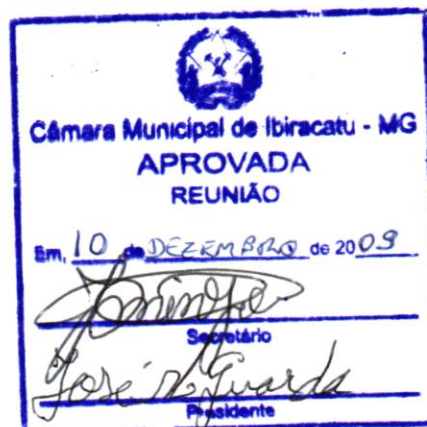 Câmara Municipal de Ibiracatu - MG
APROVADA
REUNIÃO
Em, 10 de DEZEMBRO de 2009
Secretário
José
Presidente